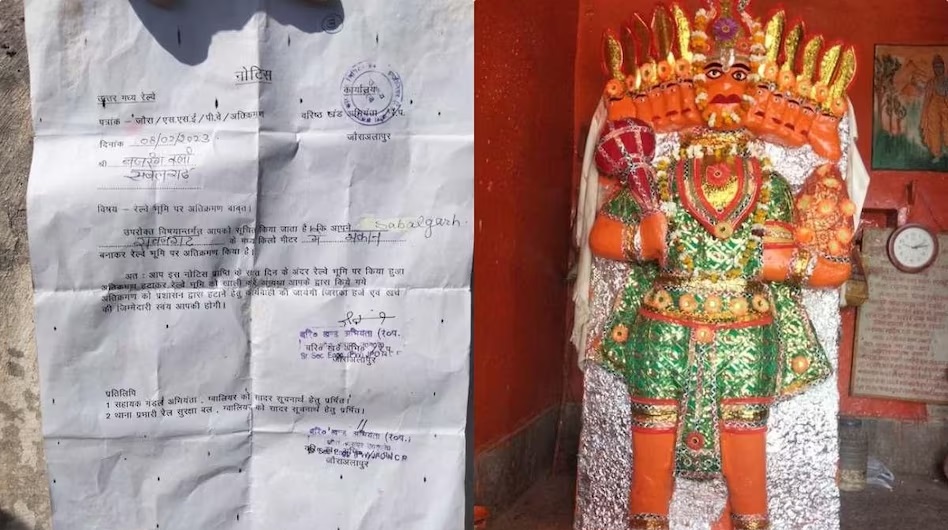 नोटिस
उत्तर मध्य रेल्वे
कार्यालय
पत्रांक - जौरा/एस.एस.ई/पी.वे/अतिक्रमण
वरिष्ठ खंड अभियंता
जौराअलापुर
दिनांक 08/02/2023
श्री बजरंग बली
सबलगढ़
विषय – रेल्वे भूमि पर अतिक्रमण बाबत।
उपरोक्त विषयान्तर्गत आपको सूचित किया जाता है कि आपने Sabalgarh
सबलगढ के मध्य किलो मीटर में मकान
बनाकर रेल्वे भूमि पर अतिक्रमण किया है।
अतः आप इस नोटिस प्राप्ति के सात दिन के अंदर रेल्वे भूमि पर किया हुआ
अतिक्रमण हटाकर रेल्वे भूमि को खाली करें अन्यथा आपके द्वारा किये गये
अतिक्रमण को प्रशासन द्वारा हटाने हेतु कार्यवाही की जावेगी जिसका हर्जे एवं खर्चे
की जिम्मेदारी स्वंय आपकी होगी।
वरि० खण्ड अभियंता (रेoपo
जौराअलापुर
प्रतिलिपि
1 सहायक मंडल अभियंता, ग्वालियर को सादर सूचनार्थ हेतु प्रर्षित।
2 थाना प्रभारी रेल सुरक्षा बल, ग्वालियर को सादर सूचनार्थ हेतु प्रर्षित।
वरि० खण्ड अभियंता (रेoपo)
जौराअलापुर